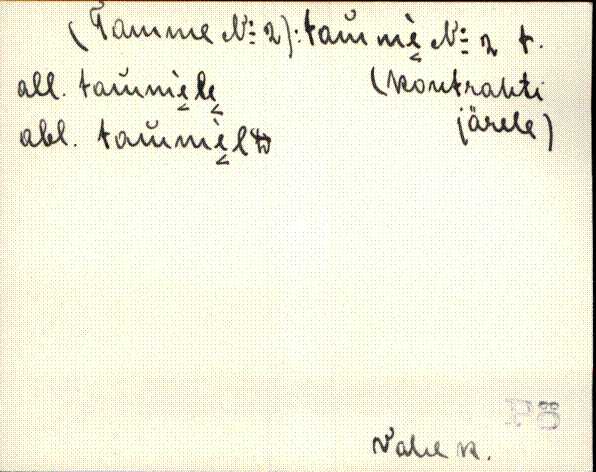 (Tamme №: 2): tam̆mè̬ №: 2 t.
all. tam̆me̬le̬ (kontrahti
abl. tam̆mè̬lt järele)
Pö
Vahe k.